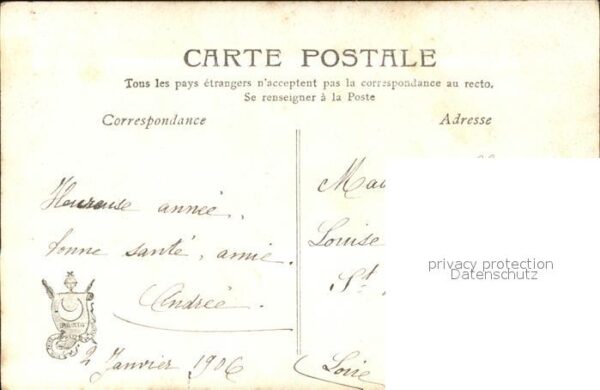 CARTE POSTALE
Tous les pays étrangers n'acceptent pas la correspondance au recto.
Se renseigner à la Poste
Correspondance
Adresse
Heureuse année,
bonne santé, amie.
Andrée.
2 Janvier 1906
Louise
St
Loire
privacy protection
Datenschutz